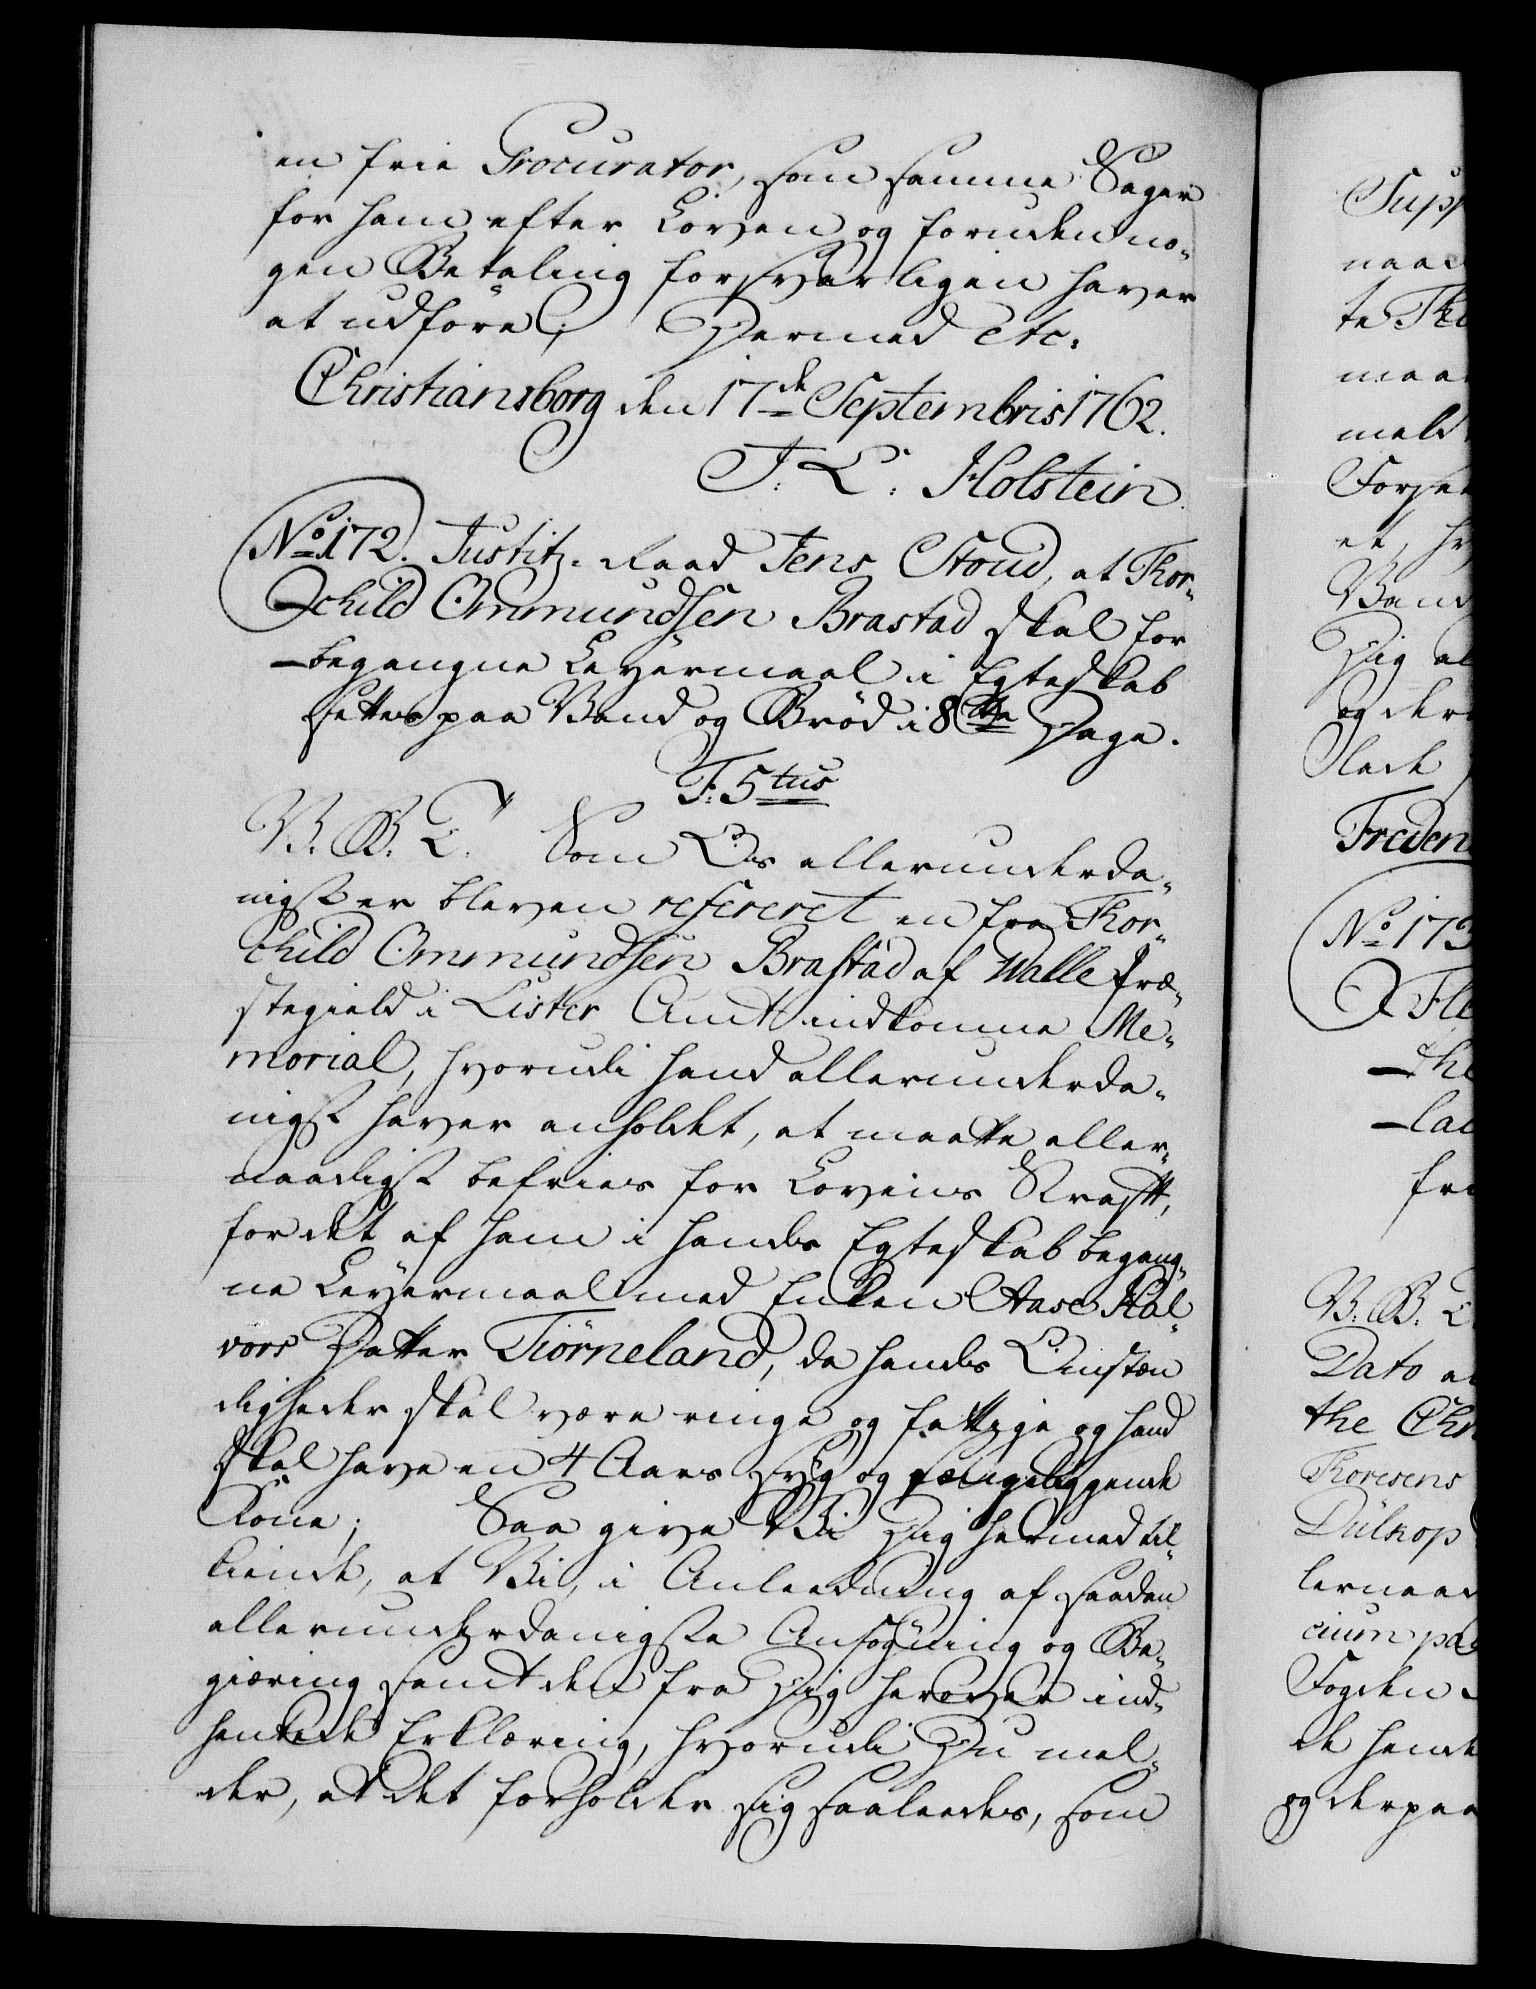 en frie Procurator, som samme Sager
for ham efter Loven og foruden no-
gen Betaling forsvarligen haver
at udføre; Dermed etc.
Christiansborg den 17de Septembris 1762.
J. L. Holstein.
No. 172. Justitz-Raad Jens Stoud, at Thor-
child Ommundsen Brastad skal for
begangne Leyermaal i Egteskab
settes paa Vand og Brød i 8tte Dage.
F: 5tus
V. G. T. Som Os allerunderda-
nigst er bleven refereret en fra Thor-
child Ommundsen Brastad af Walle Præ-
stegield i Lister Amt indkomne Me-
morial, hvorudi hand allerunderda-
nigst haver anholdet, at maatte aller-
naadigst befries for Lovens Straff,
for det af ham i handes Egteskab begang-
ne Leyermaal med Enken Aase Hal-
vors Datter Tiørneland, da handes Omstæn
digheder skal være ringe og fattige og hand
skal have en 4 Aars syg og sængeliggende
Kone; Saa give Vi Dig hermed til-
kiende, at Vi, i Anleedning af saadan
allerunderdanigste Ansøgning og Be-
giæring samt den fra Dig herover ind-
hentede Erklæring, hvorudi Du mel-
der, at det forholder sig saaleedes, som
Supp
naad
te Th
maa
meld
Forse
et, h
Vand
Dig al
og der
Slet
Frieden
No. 173
Fle
the
lad
fr
V. G. T.
Dato a
the Chr
Thoresens
Dülkop
lernaad
cium pa
Fogden
de hende
og derpaa